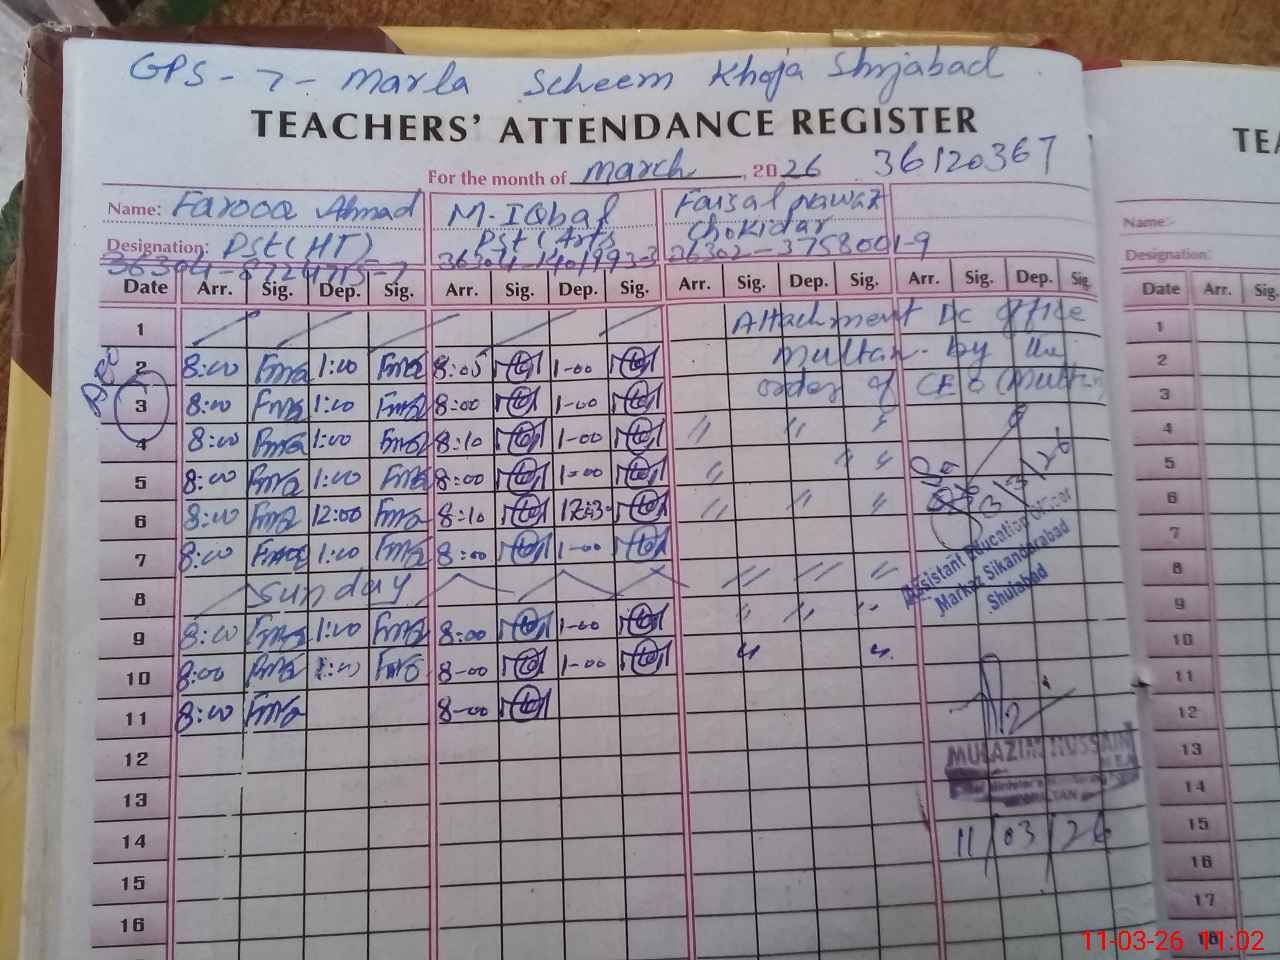 GPS - 7 - Marla Scheem Khoja Shujabad
TEACHERS' ATTENDANCE REGISTER
For the month of March, 2026 36120367
Name: Farooq Ahmad M. IQbal Faisal nawaz
Designation: PSt (HT) PSt (Arts Chokidar
36302-3758001-9
Date Arr. Sig. Dep. Sig. Arr. Sig. Dep. Sig. Arr. Sig. Dep. Sig. Arr. Sig. Dep. Sig.
1 Attachment DC office
2 8:00 1:00 8:05 1-00 Multan by the
3 8:00 1:00 8:00 1-00 order of CEO (Multan)
4 8:00 1:00 8:10 1-00 〃 〃 〃
5 8:00 1:00 8:00 1-00 〃 〃 〃
6 8:00 12:00 8:10 〃 〃 〃
7 8:00 1:00 8:00 1-00
8 Sunday 〃 〃 〃
9 8:00 1:00 8:00 1-00 〃 〃 〃
10 8:00 1:00 8-00 1-00 〃 〃
11 8:00 8-00
12
13
14
15
16
Assistant Education Officer
Markaz Sikandarabad
Shujabad
MULAZIM HUSSAIN
MULTAN
11/03/26
TEA
Name:-
Designation:
Date Arr. Sig.
1
2
3
4
5
6
7
8
9
10
11
12
13
14
15
16
17
18
11-03-26 11:02